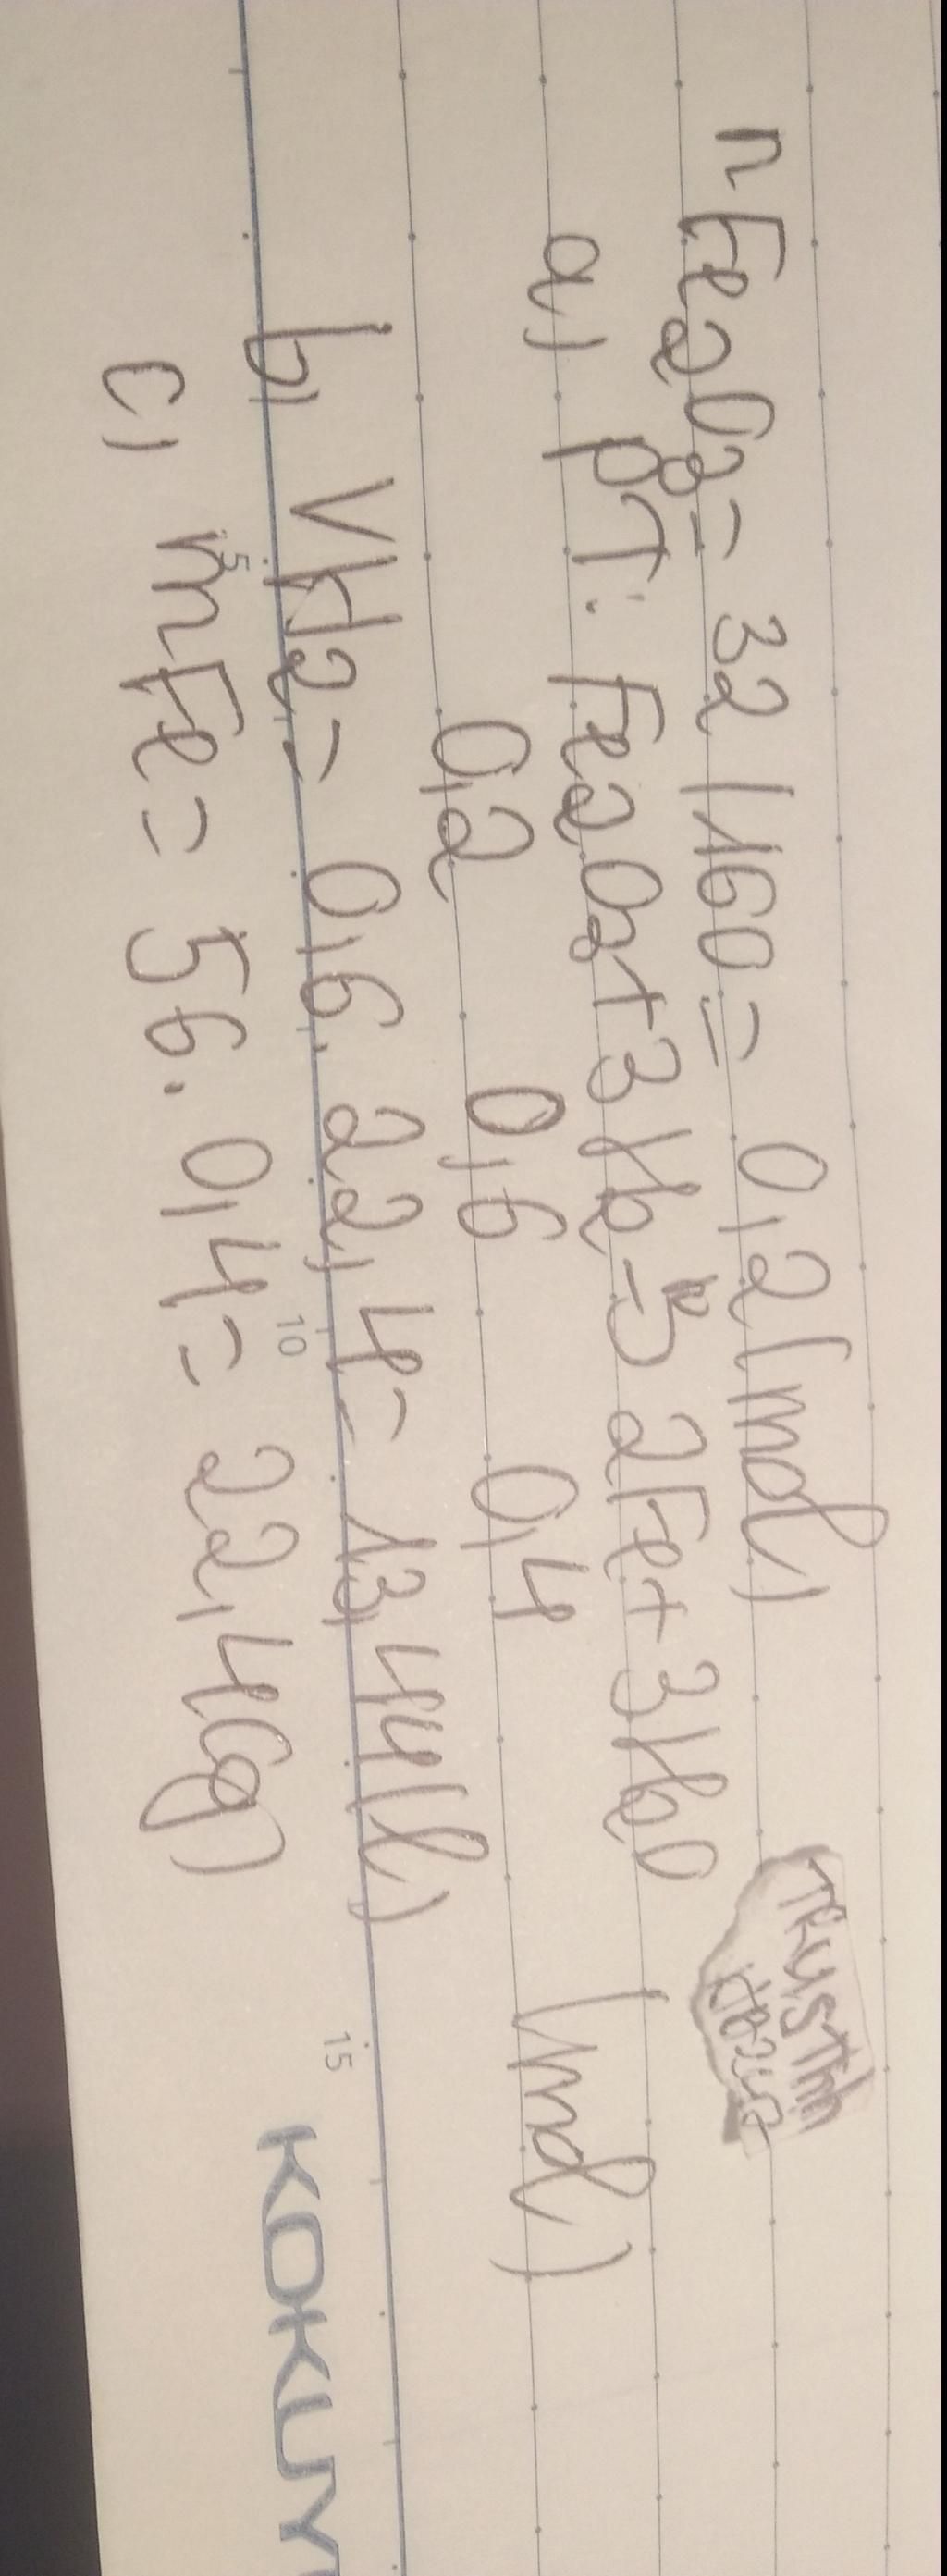 n Fe2O3 = 32/160 = 0,2 (mol)
a) PT: Fe2O3 + 3H2 → 2Fe + 3H2O
0,2 0,6 0,4 (mol)
b) VH2 = 0,6. 22,4 = 13,44 (l)
c) mFe = 56. 0,4 = 22,4 (g)
5 10 15
KOKUY